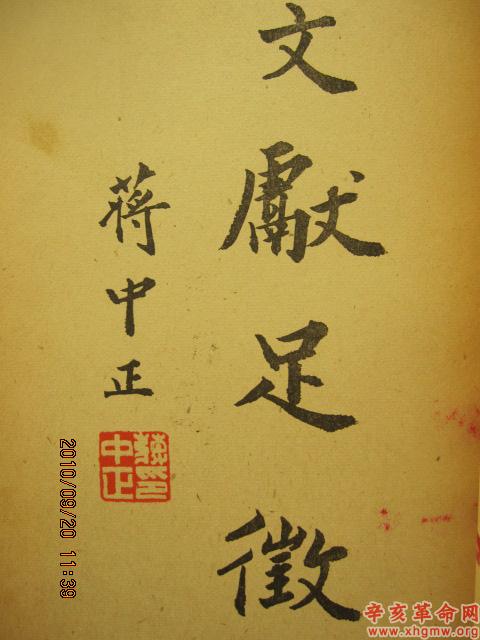 文獻足徵
蔣中正
蔣中正印
2010/09/20 11:39
辛亥革命网
www.xhgmw.org